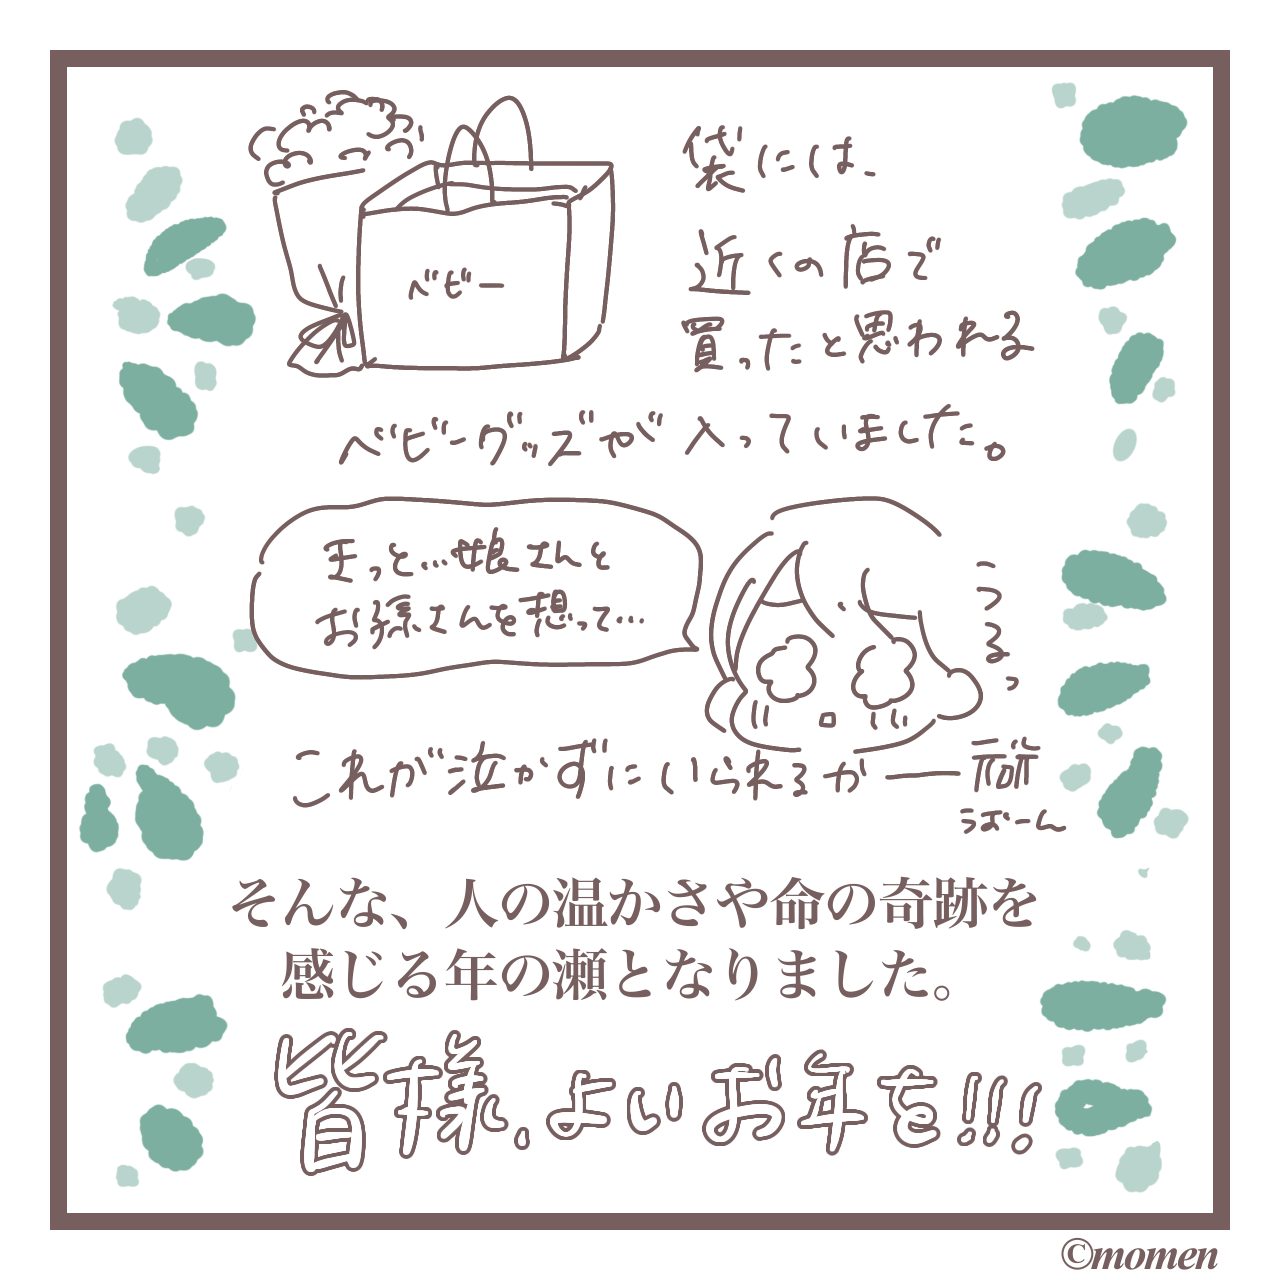 袋には、
近くの店で
買ったと思われる
ベビー
ベビーグッズが入っていました。
きっと…娘さんと
お孫さんを想って…
うるっ
これが泣かずにいられるかーー
うぉーん
そんな、人の温かさや命の奇跡を
感じる年の瀬となりました。
皆様、よいお年を!!!
©momen